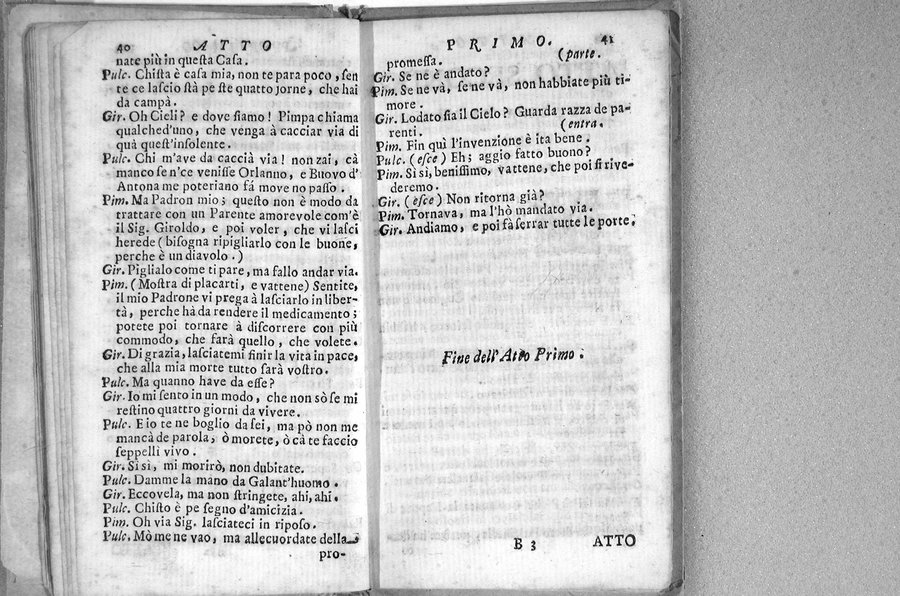 40 ATTO
nate più in questa Casa.
Pulc. Chista è casa mia, non te para poco, sen
te ce lascio stà pe ste quatto jorne, che hai
da campà.
Gir. Oh Cieli? e dove siamo! Pimpa chiama
qualched'uno, che venga à cacciar via di
quà quest'insolente.
Pulc. Chi m'ave da caccià via! non zai, cà
manco se n'ce venisse Orlanno, e Buovo d'
Antona me poteriano fá move no passo.
Pim. Ma Padron mio; questo non è modo da
trattare con un Parente amorevole com'è
il Sig. Giroldo, e poi voler, che vi lasci
herede (bisogna ripigliarlo con le buone,
perche è un diavolo.)
Gir. Piglialo come ti pare, ma fallo andar via.
Pim. (Mostra di placarti, e vattene) Sentite,
il mio Padrone vi prega à lasciarlo in liber-
tà, perche hà da rendere il medicamento;
potete poi tornare à discorrere con più
commodo, che farà quello, che volete.
Gir. Di grazia, lasciatemi finir la vita in pace,
che alla mia morte tutto sarà vostro.
Pulc. Ma quanno have da esse?
Gir. Io mi sento in un modo, che non sò se mi
restino quattro giorni da vivere.
Pulc. E io te ne boglio da sei, ma pò non me
mancà de parola, ò morete, ò cà te faccio
seppellì vivo.
Gir. Sì sì, mi morirò, non dubitate.
Pulc. Damme la mano da Galant'huomo.
Gir. Eccovela, ma non stringete, ahi, ahi.
Pulc. Chisto è pe segno d'amicizia.
Pim. Oh via Sig. lasciateci in riposo.
Pulc. Mò me ne vao, ma allecuordate della
pro-
PRIMO. 41
promessa. (parte.
Gir. Se ne è andato?
Pim. Se ne và, se ne và, non habbiate più ti-
more.
Gir. Lodato sia il Cielo? Guarda razza de pa-
renti. (entra.
Pim. Fin quì l'invenzione è ita bene.
Pulc. (esce) Eh; aggio fatto buono?
Pim. Sì sì, benissimo, vattene, che poi si rive-
deremo.
Gir. (esce) Non ritorna già?
Pim. Tornava, ma l'hò mandato via.
Gir. Andiamo, e poi fà serrar tutte le porte.
Fine dell'Atto Primo.
B 3 ATTO